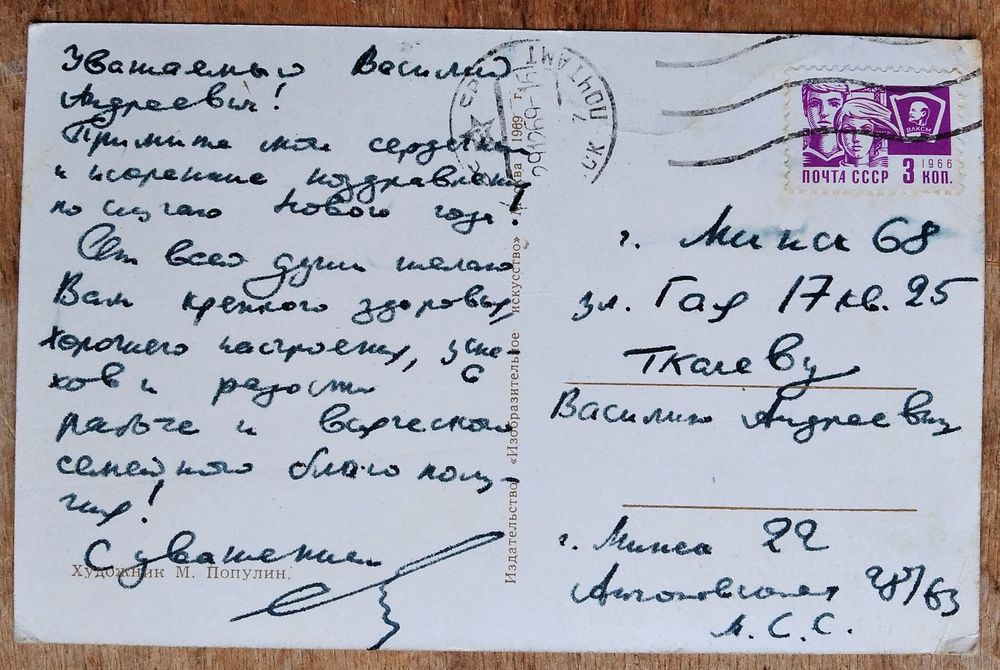 Уважаемый Василий
Андреевич!
Примите мои сердечные
и искренние поздравления
по случаю Нового года!
От всей души желаю
Вам крепкого здоровья,
хорошего настроения, успе-
хов и радости в
работе и всяческого
семейного благополу-
чия!
С уважением
Художник М. Популин.
Издательство «Изобразительное искусство» Москва 1969 г.
ПОЧТАМТ
291269-15
ВЛКСМ
1966
ПОЧТА СССР 3 КОП.
г. Минск 68
ул. Гая 17 кв. 25
Ткачеву
Василию Андреевичу
г. Минск 22
28/63